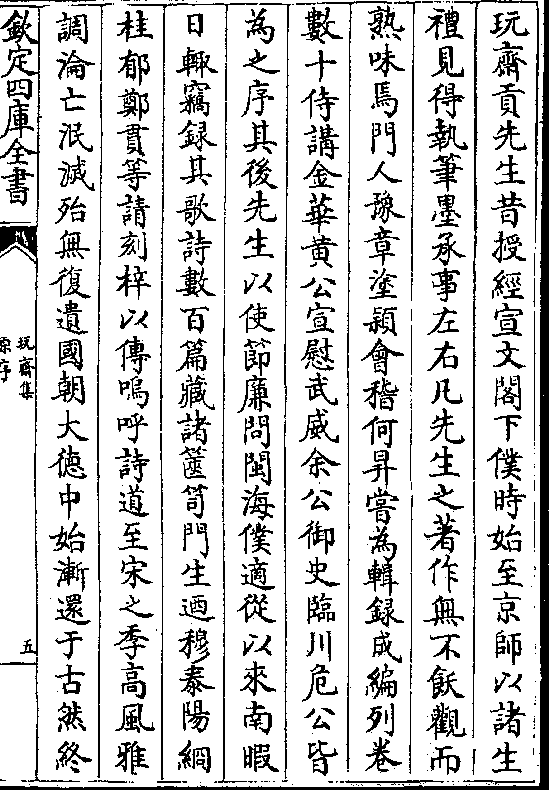 玩齋貢先生昔授經宣文閣下僕時始至京師以諸生
禮見得執筆墨承事左右凡先生之著作無不飫觀而
熟味焉門人豫章塗頴會稽何昇嘗為輯録成編列卷
數十侍講金華黄公宣慰武威余公御史臨川危公皆
為之序其後先生以使節廉問閩海僕適從以來南暇
日輙竊録其歌詩數百篇藏諸篋笥門生迺穆泰陽綱
桂郁鄭貫等請刻梓以傳嗚呼詩道至宋之季高風雅
調淪亡泯滅殆無復遺國朝大徳中始漸還于古然終
欽定四庫全書
玩齋集
原序
五